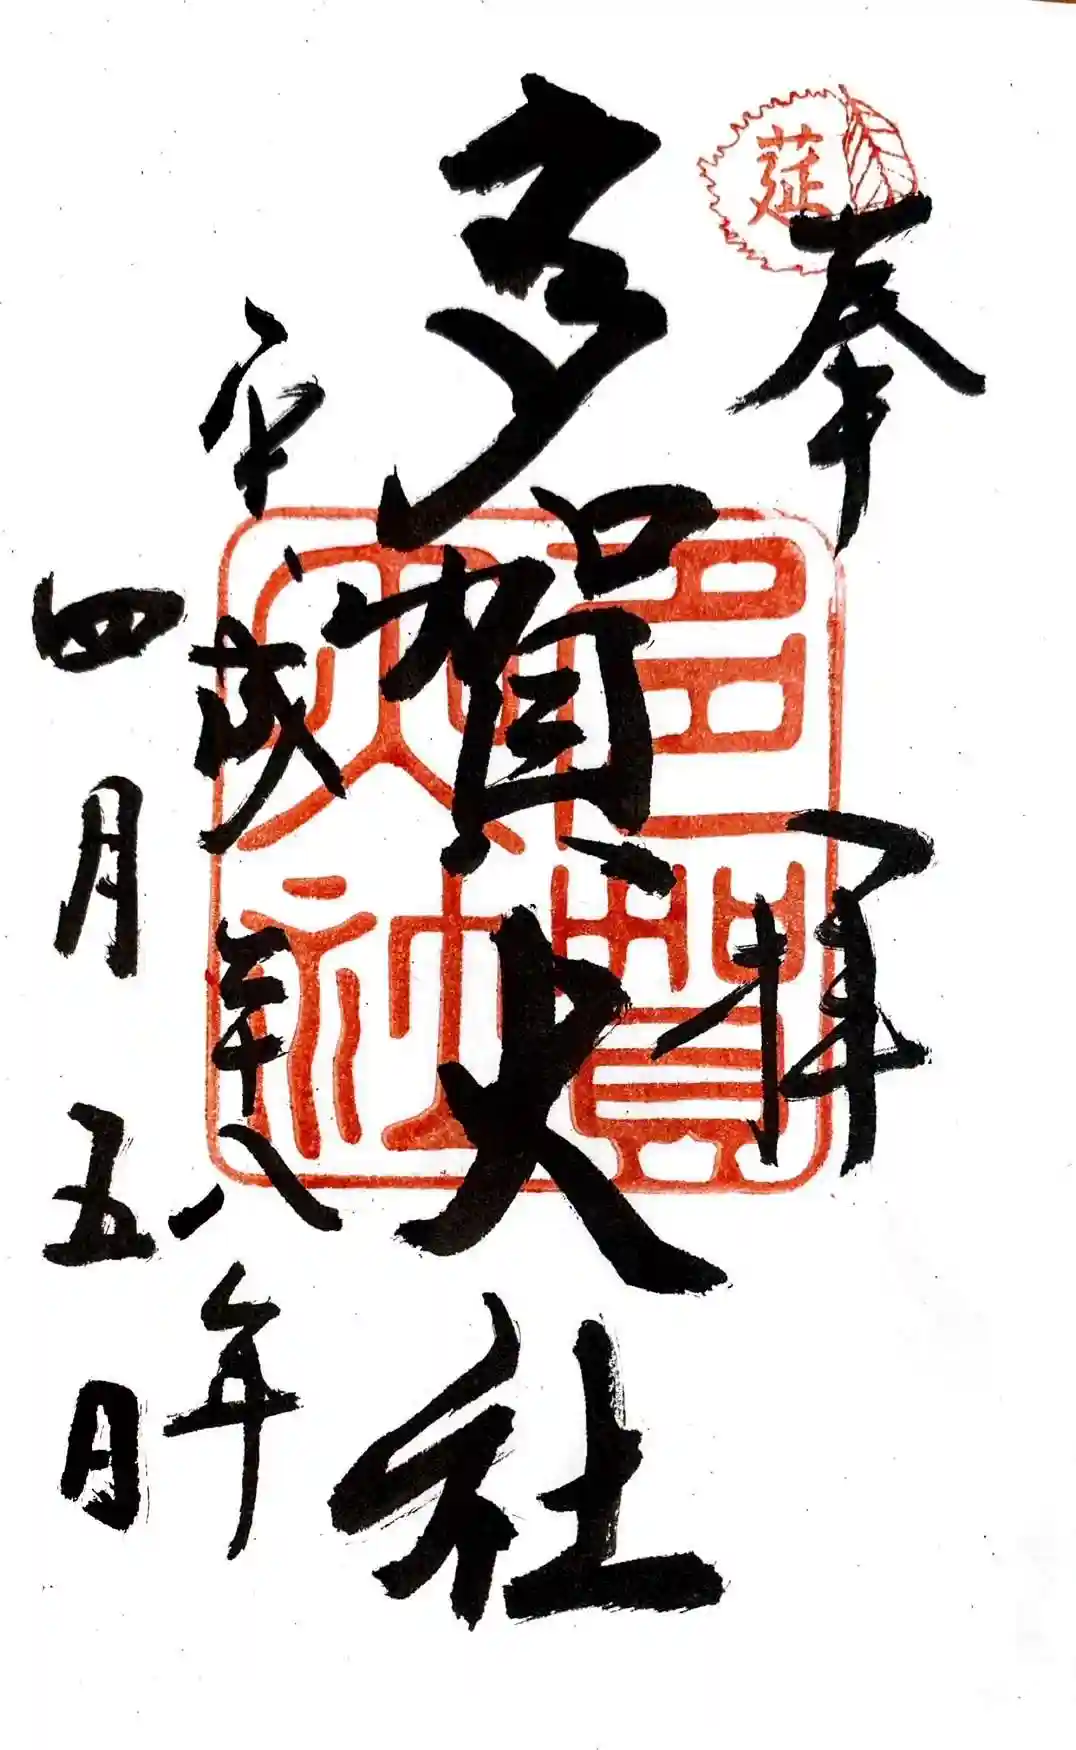 莚
奉拝
多賀大社
多賀大社
平成二十八年
四月五日